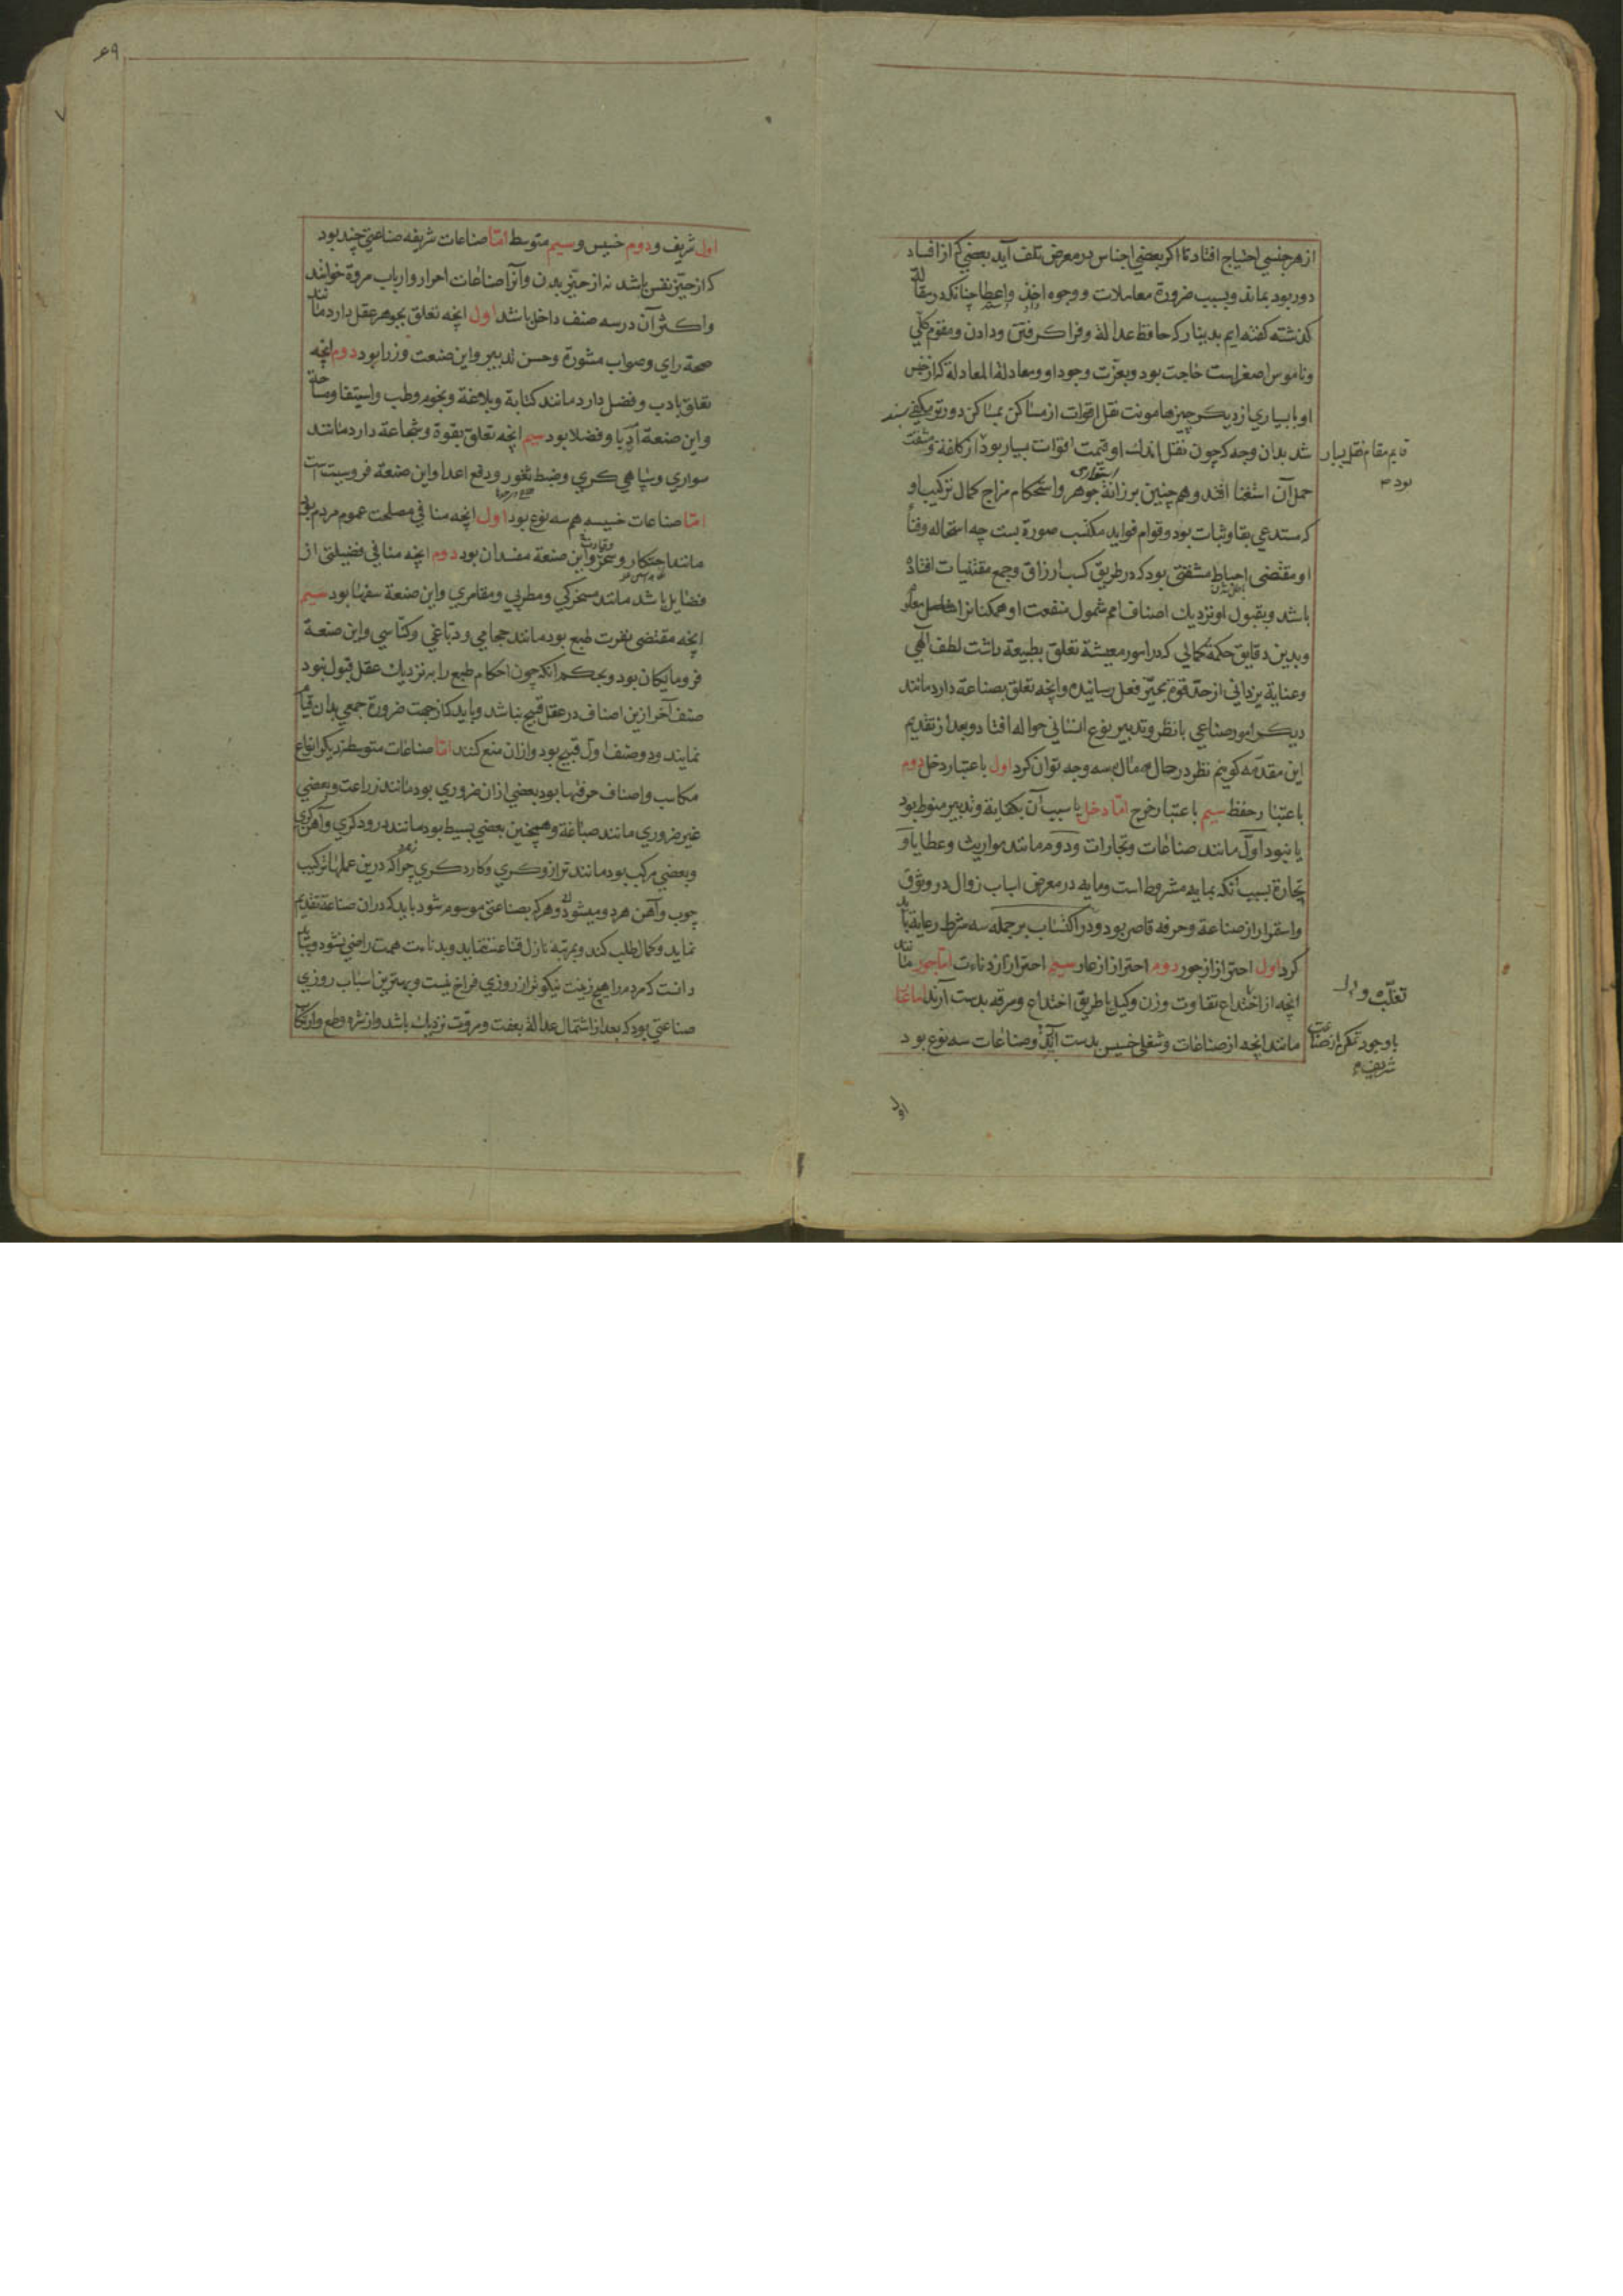 از هر جنسی احتیاج افتاد تا اکر بعضی اجناس در معرض تلف آید بعضی که از افساد
دور بود بماند وبسبب ضرورة معاملات ووجوه اخذ واعطا چنانکه در مقاله
کذشته کفته ایم بدینار که حافظ عدالة وفرا کرفتن ودادن ومقوم کلی
وناموس اصغر است حاجت بود وبعزت وجود او ومعادلة المعادلة که از جنس
او با بسیاری از دیکر چیزها مونت نقل اقوات از مساکن بمساکن دورتر مکفی
شد بدان وجه که چون نقل اندک او قیمت اقوات بسیار بود از کلفة ومشقت
قایم مقام نقل بسیار
بود
حمل آن استغنا افتد وهم چنین برزانة جوهر واستحکام مزاج وکمال ترکیب او
استواری
که مستدعی بقا وثبات بود وقوام فواید مکتسب صورة بست چه استحاله وفنا
او مقتضی احباط مشقتی بود که در طریق کسب ارزاق وجمع مقتنیات افتاده
باشد وبقبول او نزدیک اصناف امم شمول منفعت او همکنانرا
وبدین دقایق حکمة کمالی که در امور معیشة تعلق بطبیعة داشت لطف الهی
وعنایة یزدانی از حد قوة بحیز فعل رسانیده وانچه تعلق بصناعة دارد مانند
دیکر امور صناعی با نظر وتدبیر نوع انسانی حواله افتاد وبعد از تقدیم
این مقدمه کوییم نظر در حال مال بسه وجه توان کرد اول باعتبار دخل دوم
باعتبار حفظ سیم باعتبار خرج اما دخل یا سبب آن بکفایة وتدبیر منوط بود
یا نبود اول مانند صناعات وتجارات ودوم مانند مواریث وعطایا و
تجارة بسبب آنکه بمایه مشروط است ومایه در معرض اسباب زوال در وثوق
واستمرار از صناعة وحرفه قاصر بود ودر اکتساب بر جمله سه شرط رعایة باید
کرد اول احتراز از جور دوم احتراز از عار سیم احتراز از دناءت اما جور مانند
انچه از اختداع تفاوت وزن وکیل یا طریق اختداع وسرقه بدست آرند اما عار
مانند انچه از صناعات وشغلی خسیس بدست آید وصناعات سه نوع بود
با وجود تمکن از صناعات
شریفه
اول
۶۹
اول شریف ودوم خسیس وسیم متوسط اما صناعات شریفه صناعتی چند بود
که از حیز نفس باشد نه از حیز بدن وآنرا صناعات احرار وارباب مروة خوانند
واکثر آن در سه صنف داخل باشد اول انچه تعلق بجوهر عقل دارد مانند
صحة رای وصواب مشورة وحسن تدبیر واین صنعت وزرا بود دوم انچه
تعلق بادب وفضل دارد مانند کتابة وبلاغة ونجوم وطب واستیفا ومساحة
واین صنعة ادبا وفضلا بود سیم انچه تعلق بقوة وشجاعة دارد مانند
سواری وسپاهی کری وضبط ثغور ودفع اعدا واین صنعة فروسیت است
اما صناعات خسیسه هم سه نوع بود اول انچه منافی مصلحت عموم مردم بود
مانند احتکار وسحر واین صنعة مفسدان بود دوم انچه منافی فضیلتی از
فضایل باشد مانند مسخرکی ومطربی ومقامری واین صنعة سفها بود سیم
انچه مقتضی نفرت طبع بود مانند حجامی ودباغی وکناسی واین صنعة
فرومایکان بود وبحکم آنکه چون احکام طبع را به نزدیک عقل قبول نبود
صنف آخر ازین اصناف در عقل قبیح نباشد وباید که از جهت ضرورة جمعی بدان قیام
نمایند ودو صنف اول قبیح بود واز آن منع کنند اما صناعات متوسطه دیکر انواع
مکاسب واصناف حرفتها بود بعضی از ان ضروری بود مانند زراعت وبعضی
غیر ضروری مانند صباغة وهمچنین بعضی بسیط بود مانند درودکری وآهن کری
وبعضی مرکب بود مانند ترازوکری وکاردکری چرا که درین عملها ترکیب
چوب وآهن هر دو میشود وهر که بصناعتی موسوم شود باید که در ان صناعة تقدیم
نماید وکمال طلب کند وبمرتبه نازل قناعت ننماید وبدناءت همت راضی نشود وبباید
دانست که مردم را هیچ زینت نیکوتر از روزی فراخ نیست وبهترین اسباب روزی
صناعتی بود که بعد از اشتمال عدالة بعفت ومروت نزدیک باشد واز شره وطمع وارتکاب